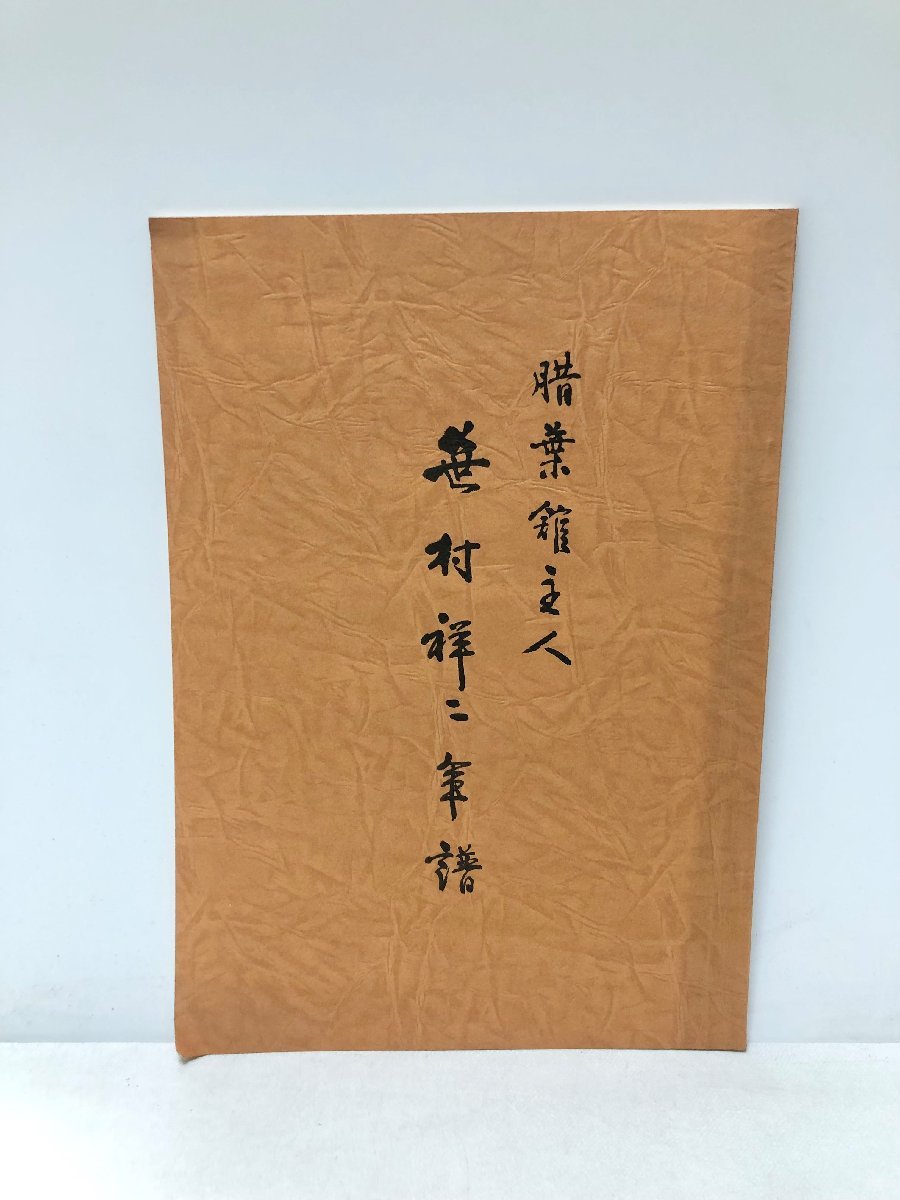 腊葉館主人
笹村祥二年譜